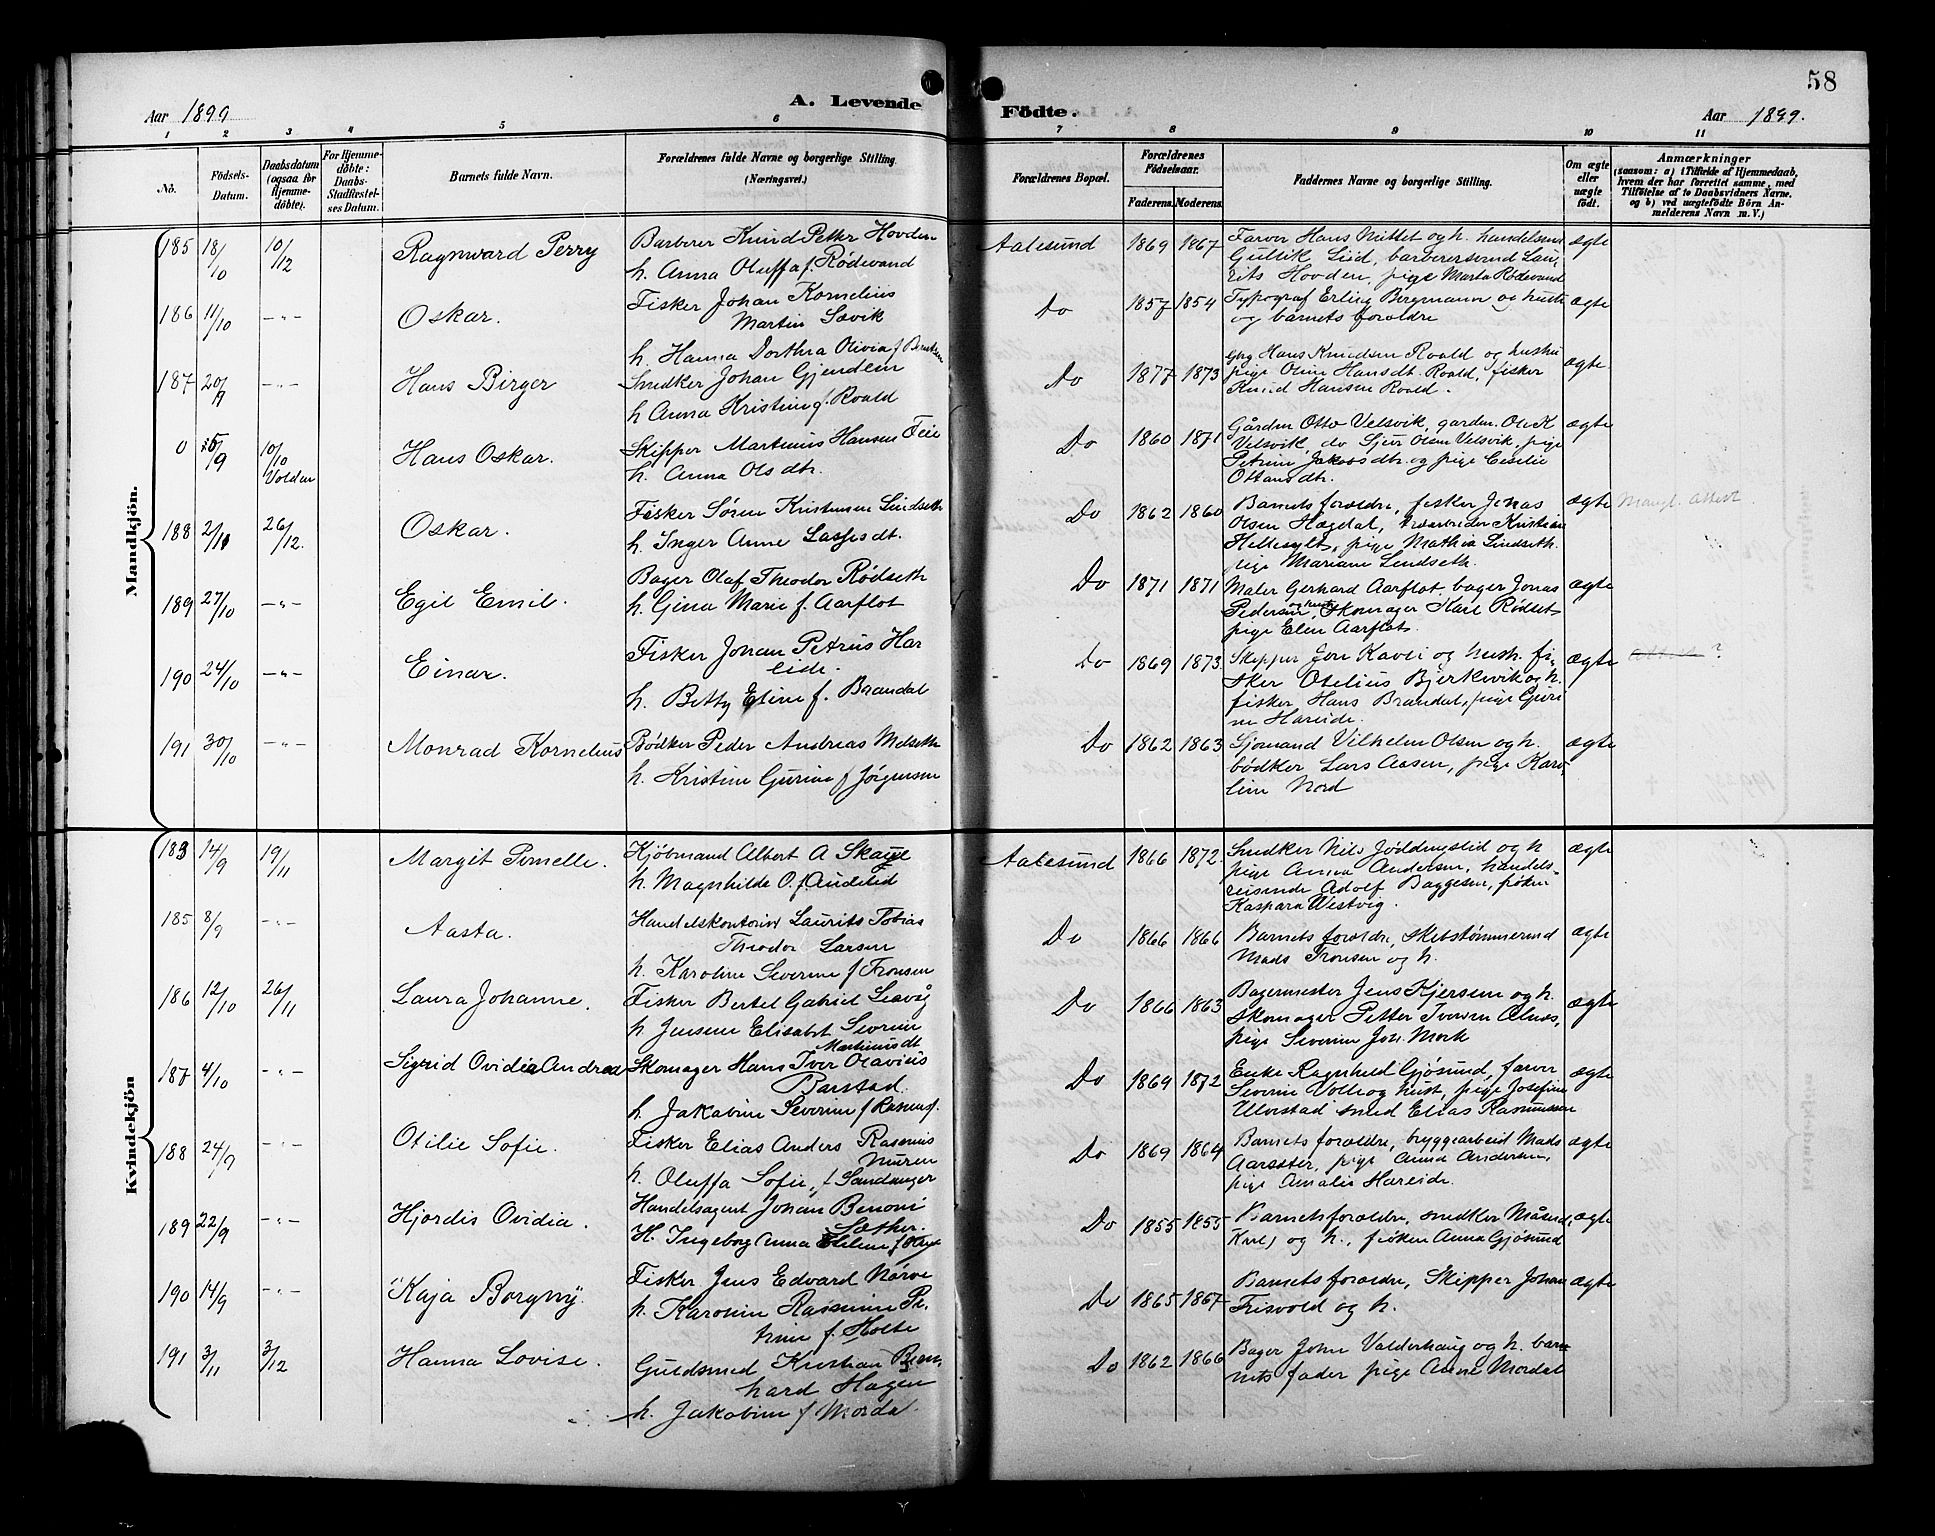 58
Aar 1899
A. Levende
Födte.
Aar 1899.
1 2 3 4 5 6 7 8 9 10 11
No.
Födsels-Datum.
Daabsdatum (ogsaa for Hjemme-döbte).
For Hjemme-döbte: Daabs-Stadfæstel-ses Datum.
Barnets fulde Navn.
Forældrenes fulde Navne og borgerlige Stilling.
(Næringsvei.)
Forældrenes Bopæl.
Forældrenes Födselsaar.
Faderens. Moderens.
Faddernes Navne og borgerlige Stilling.
Om ægte eller uægte födt.
Anmærkninger
(saasom: a) i Tilfælde af Hjemmedaab, hvem der har forrettet samme, med Tilföielse af to Daabsvidners Navne. og b) ved uægtefödte Börn An-melderens Navn m. V.)
Mandkjön.
185 18/10 10/12 Ragnvard Perry
Barberer Knud Petter Hovden
h. Anna Oluffa f. Rødevand
Aalesund 1869 1867
Farver Hans Nuttet og h. handelsm.
Gullik Lied, barberersvend Lau-
rits Hovden, pige Marta Rødevand
ægte
186 11/10 -"- Oskar.
Fisker Johan Kornelius
Martin Sævik
h. Hanna Dorthea Olivia f. Berntsen
Do 1857 1854
Typograf Erling Bergmann og hustr
og barnets forældre
ægte
187 20/9 -"- Hans Birger
Snedker Johan Gjendem
h Anna Kristine f. Roald
Do 1877 1873
Gbg Hans Knudsen Roald og hustru
pige Oline Hansdt. Roald, fisker
Knud Hansen Roald.
ægte.
0 25/9 10/10 Volden Hans Oskar.
Skipper Martinus Hansen Feie
h. Anna Olsdtr.
Do 1860 1871
Gårdm Otto Velsvik, garden. Ole K
Velsvik, do Sjur Olsen Velsvik, pige
Petrine Jakobsdtr. og pige Cesilie
Ottansdtr.
ægte
188 2/11 26/12. Oskar.
Fisker Søren Kristensen Lindseth
h. Inger Anne Lassesdt.
Do 1862 1860
Barnets forældre, fisker Jonas
Olsen Hægdal, Kristian
Hellesylt, pige Mathia Lindseth.
pige Mariane Lindseth.
ægte Mangl. attest
189 27/10 -"- Egil Emil.
Bager Olaf Theodor Rødseth
h. Gina Marie f. Aarflot
Do 1871 1871
Maler Gerhard Aarflot, bager Jonas
Pedersen og hustr, Skomager Karl Rødset
pige Elen Aarflot.
ægte
190 24/10 -"- Einar.
Fisker Johan Petrus Har
eide.
h. Betty Eline f. Brandal
Do 1869 1873
Skipper Jon Kavli og hush. fi-
sker Otelius Bjerkevik og h.
fisker Hans Brandal, pige Guri
ne Hareide.
ægte attest ?
191 30/10 -"- Monrad Kornelius
Bødker Peder Andreas Melseth
h. Kristine Gurine f Jørgensen
Do 1862 1863
Sjømand Vilhelm Olsen og h.
bødker Lars Aasen, pige Karo-
line Nord
ægte
Kvindekjön
183 14/9 19/11 Margit Pernelle.
Kjøbmand Albert A Skauge
h. Magnhilde O. f. Andestad
Aalesund 1866 1872.
Snedker Nils Jøddingstid og h
pige Anna Andersen, handels-
reisende Adolf Baggesen, frøken
Kaspara Westvig.
ægte
185 8/9 -"- Aasta.
Handelskontorist Laurits Tobias
Theodor Larsen
h. Karoline Severine f Fronsen
Do 1866 1866
Barnets forældre, skibstømmermd
Mads Fronsen og h.
ægte
186 12/10 26/11 Laura Johanne.
Fisker Bertel Gabriel Leivåg
h. Jensine Elisabet Severine
Martinusdt
Do 1866 1863
Bagermester Jens Kjersem og h.
Skomager Petter Iversen Alnes,
pige Severine Joh. Mork
ægte
187 4/10 -"- Sigrid Ovidia Andrea
Skomager Hans Iver Olavius
Barstad.
h. Jakobine Severine f Rasmusf.
Do 1869 1872
Enke Ragnhild Gjøsund, farver
Severin Volle og hust, pige Josefine
Ulvestad smed Elias Rasmussen
ægte
188 24/9 -"- Otilie Sofie.
Fisker Elias Anders Rasmus
Muren
h. Oluffa Sofie, f Sandanger
Do 1869 1864
Barnets forældre, bryggearbeid Mads
Aarsæter, pige Anna Andersen,
pige Amalie Hareide.
ægte
189 22/9 -"- Hjordis Ovidia.
Handelsagent Johan Benoni
Sæther.
H. Ingeborg Anna Helene f
Do 1855 1855
Barnets forældre, snedker
Karl og h., frøken Anna Gjøsund
ægte
190 14/9 -"- Kaja Borgny.
Fisker Jens Edvard Nørve
h. Karoline Rasmine Pe-
trine f. Holte
Do 1865 1867
Barnets forældre, Skipper Johan
Frisvold og h.
ægte
191 3/11 3/12 Hanna Lovise.
Guldsmed Kristian Bern
hard Hagen
h. Jakobine f Mordal.
Do 1862 1866
Bager John Valderhaug og h. bar-
nets fader pige Anne Mordal
ægte